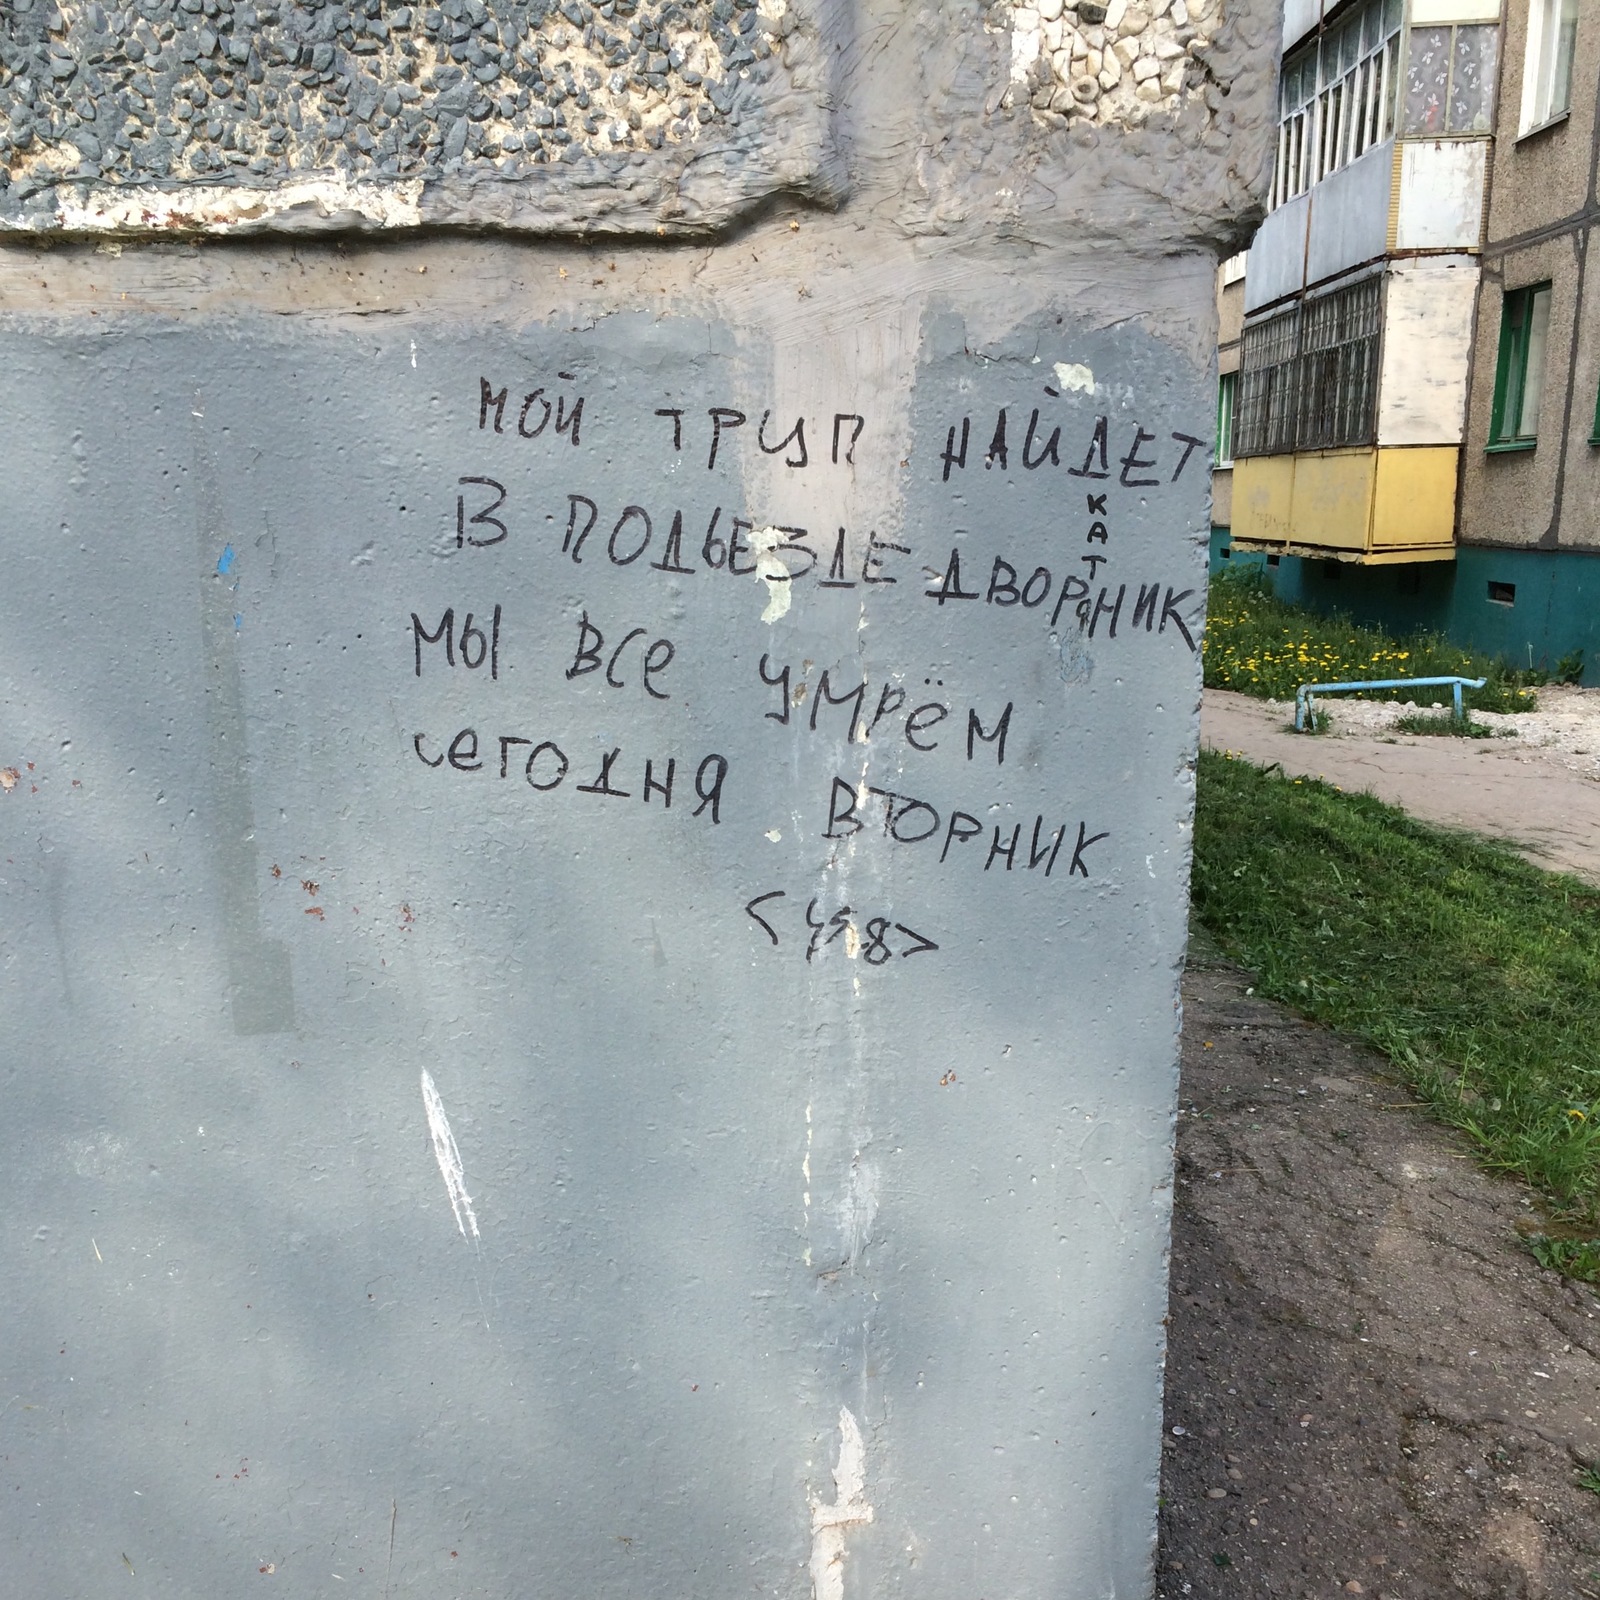 МОЙ ТРУП НАЙДЕТ
В ПОДЬЕЗДЕ ДВОРНИК
КАТЯ
МЫ ВСЕ УМРЁМ
СЕГОДНЯ ВТОРНИК